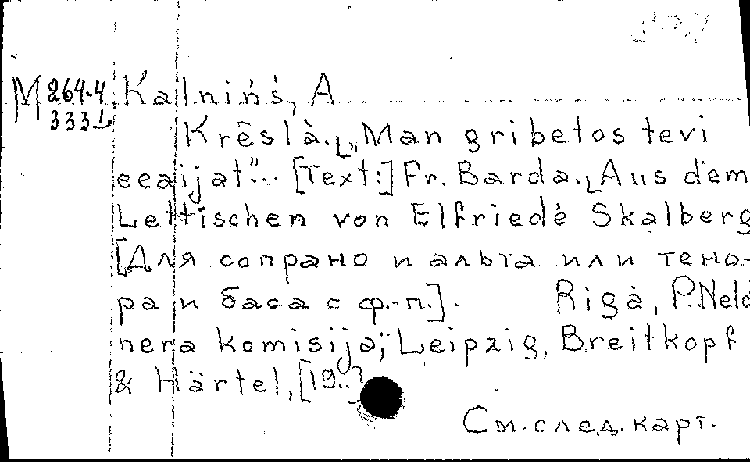 M 264.4 Kalniņš, A
333 L
Krēslà. „Man gribetos tevi
eeaijat"... [Text:] Fr. Barda. Aus dem
Lettischen von Elfriede Skalberg
[Для сопрано и альта или тено-
ра и баса с ф.-п.]. Rigà, P. Neld
nera komisija; Leipzig, Breitkopf
& Härtel, [19..]
См. след. карт.